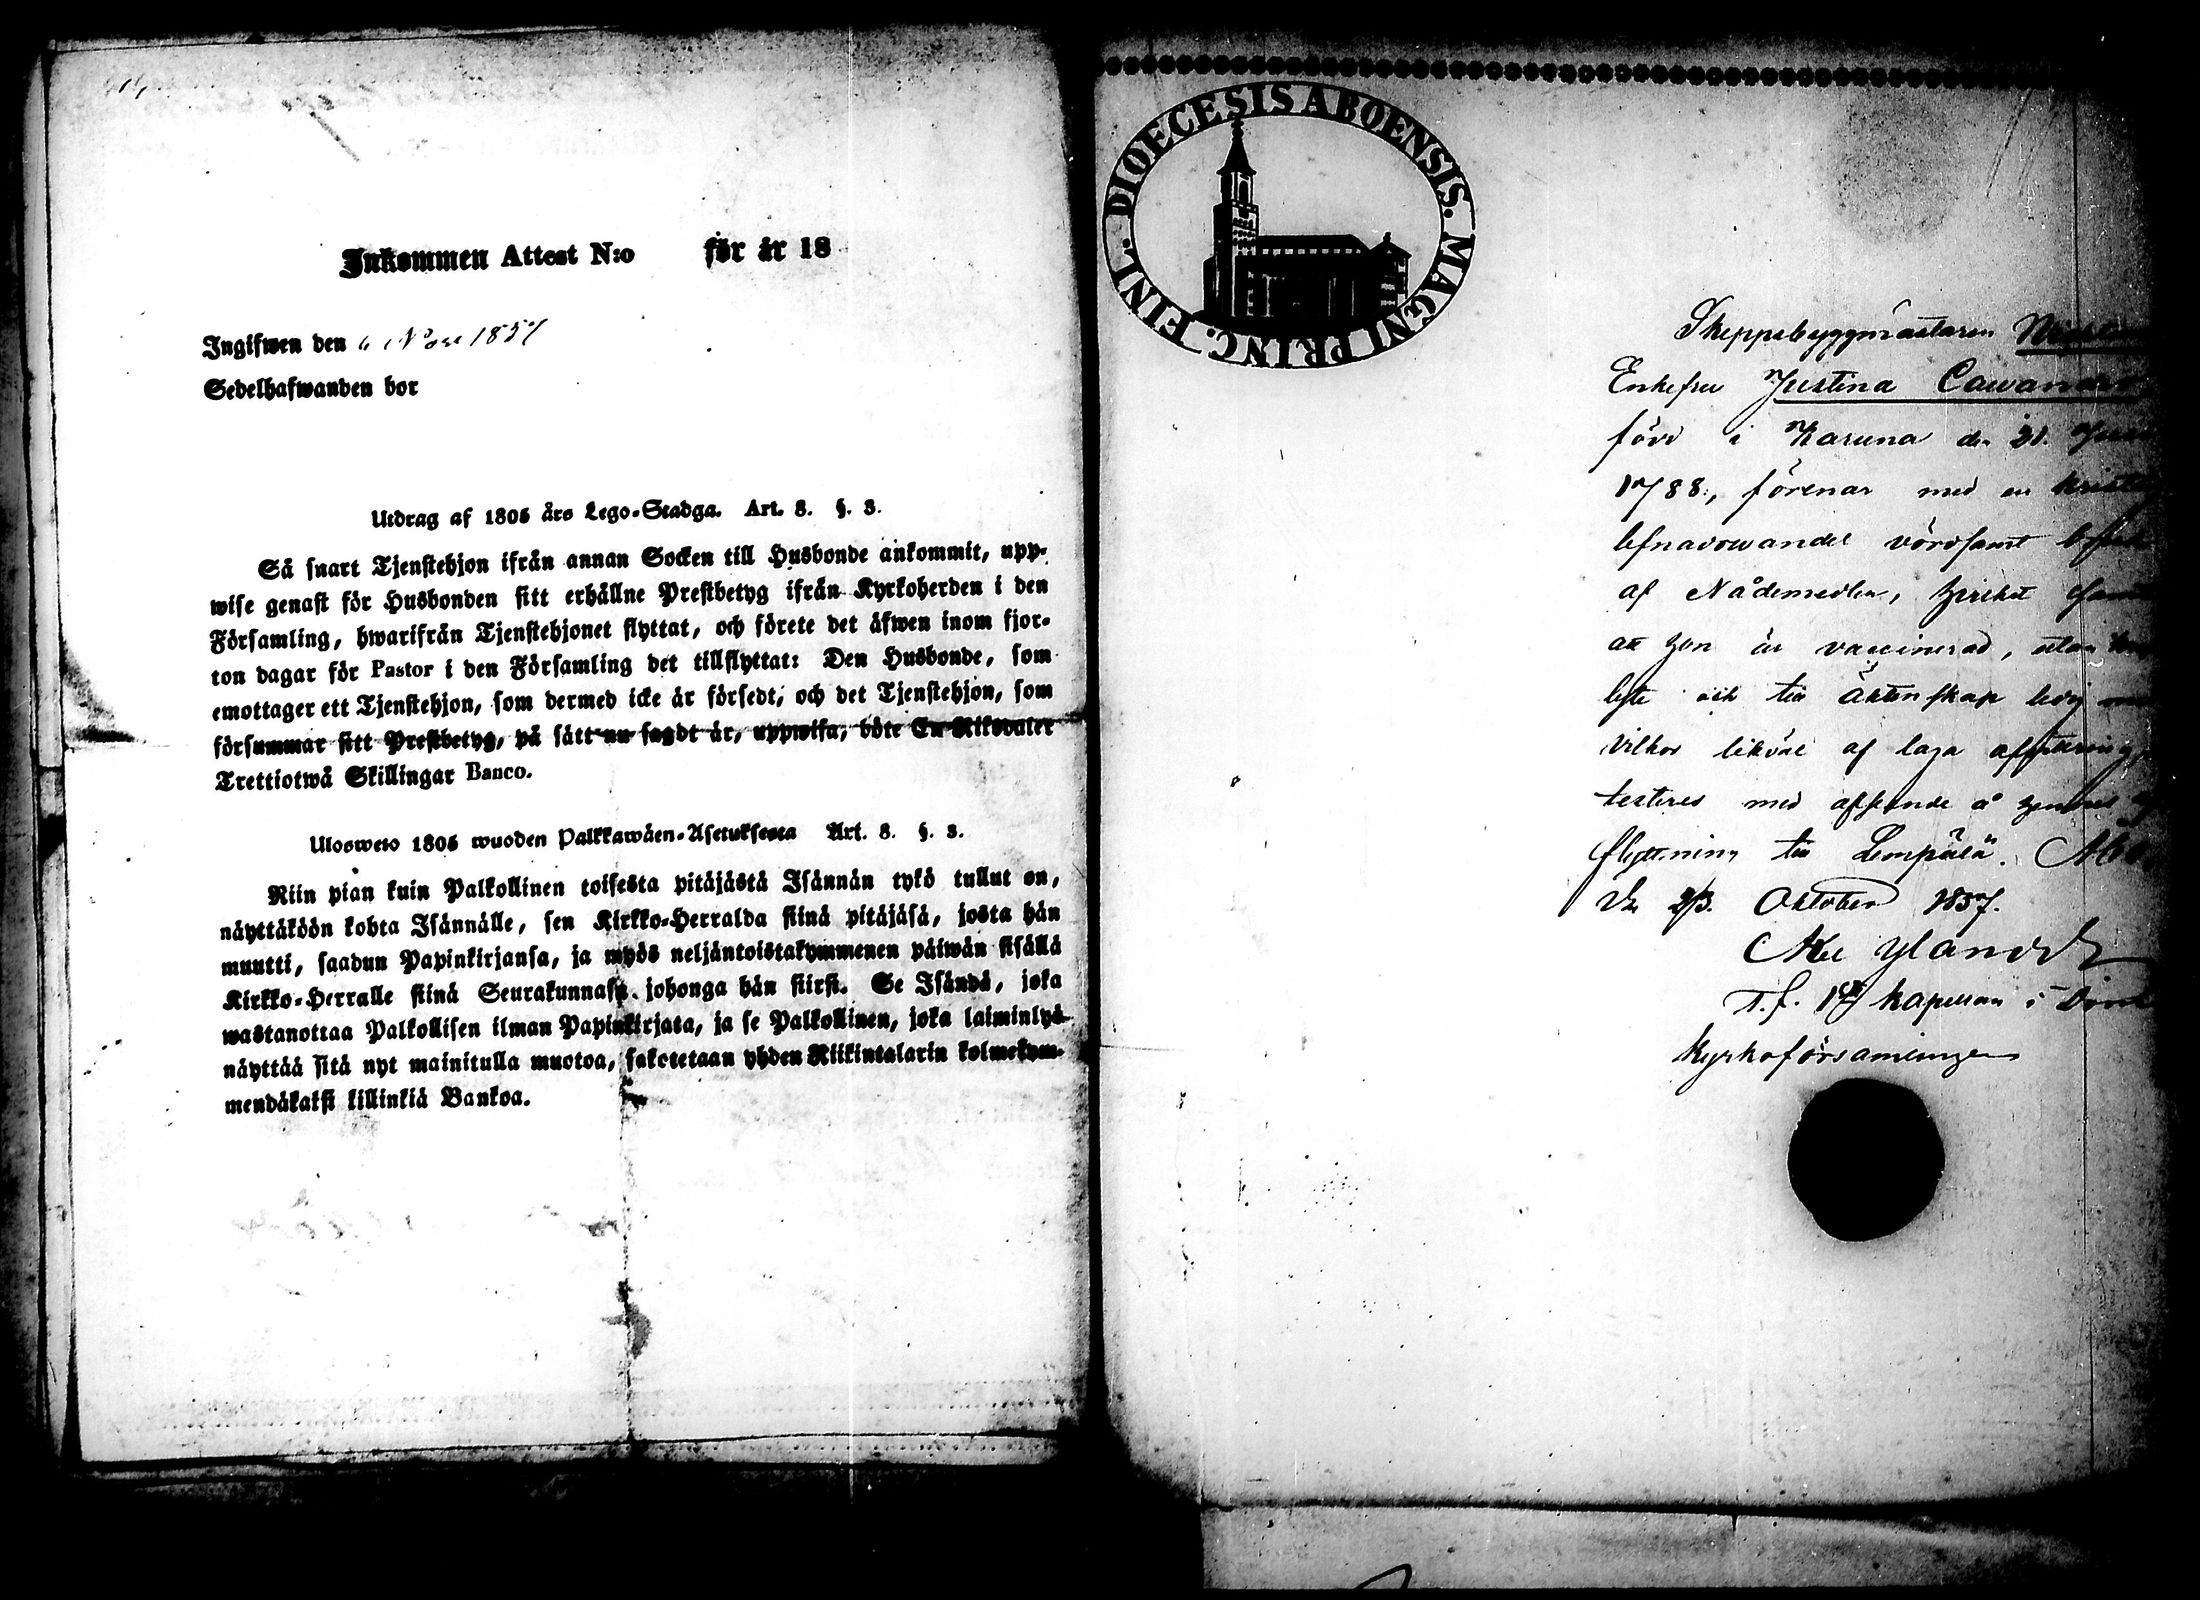 Inkommen Attest N:o för år 18
Ingifwen den 6 Nov 1857
Sedelhafwanden bor
Utdrag af 1805 års Lego-Stadga. Art. 8. §. 3.
Så snart Tjenstehjon ifrån annan Socken till Husbonde ankommit, upp-
wise genast för Husbonden sitt erhållne Prestbetyg ifrån Kyrkoherden i den
Församling, hwarifrån Tjenstehjonet flyttat, och förete det äfwen inom fjor-
ton dagar för Pastor i den Församling det tillflyttat: Den Husbonde, som
emottager ett Tjenstehjon, som dermed icke är försedt, och det Tjenstehjon, som
försummar sitt Prestbetyg, på sätt nu sagdt är, uppwisa, böte En Riksdaler
Trettiotwå Skillingar Banco.
Ulosweto 1805 wuoden Palkkawäen-Asetuksesta Art. 8. §. 3.
Niin pian kuin Palkollinen toisesta pitäjästä Isännän tykö tullut on,
näyttäköön kohta Isännälle, sen Kirkko-Herralda siinä pitäjäsä, josta hän
muutti, saadun Papinkirjansa, ja myös neljäntoistakymmenen päiwän sisällä
Kirkko-Herralle siinä Seurakunnasa, johonga hän siirsi. Se Isändä, joka
wastanottaa Palkollisen ilman Papinkirjata, ja se Palkollinen, joka laiminlyö
näyttää sitä nyt mainitulla muotoa, sakotetaan yhden Riikintalarin kolmekym-
mendäkaksi killinkiä Bankoa.
DIOECESIS ABOENSIS. MAGNI PRINC. FINL.
Skeppsbyggmästaren
Enkefru Justina Cawander
född i Karuna den 21.
1788, förenar med en kristlig
lefnadswandel vördsamt
af Nådemedlen, hwiket
att hon är vaccinerad, utan
lyte och till Äktenskap ledig
vilkor likväl af laga afvittring,
testeres med afseende å hennes
flyttning till Lempälä. Åbo
den 23. Oktober 1857.
Ylander
T. f. 1ste kapellan i
Kyrkoförsamlingen